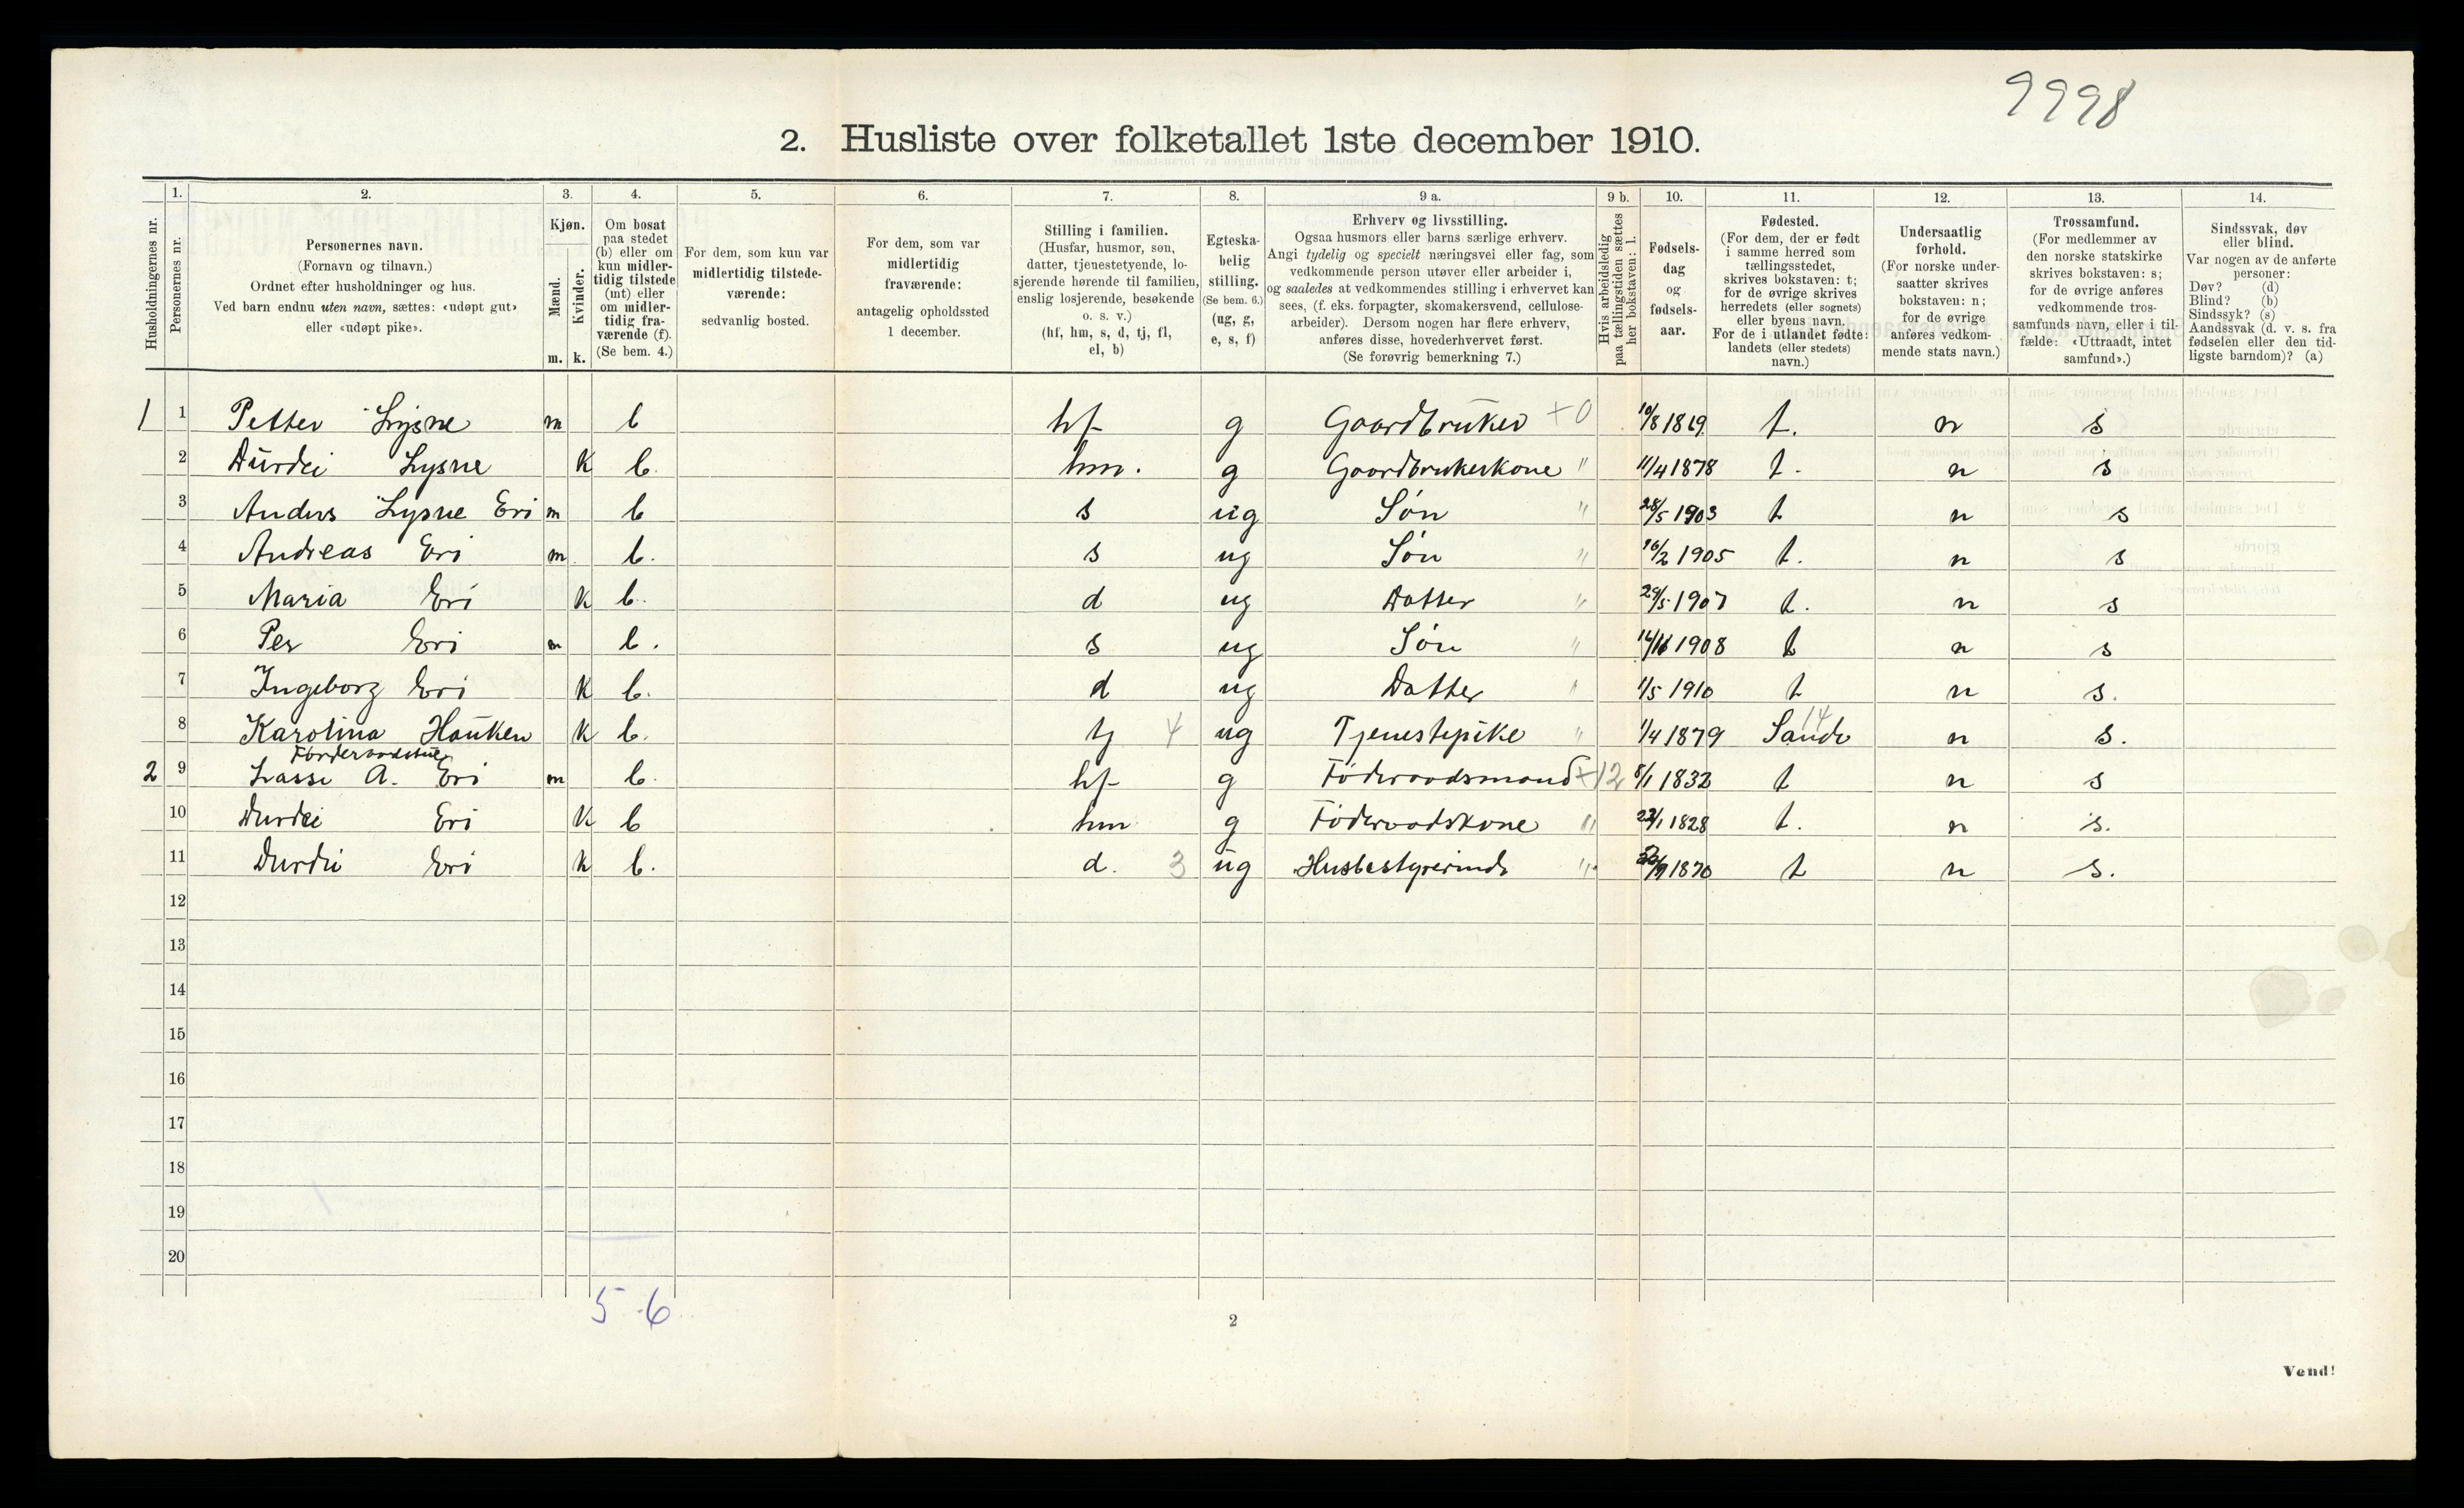 9998
2. Husliste over folketallet 1ste december 1910.
Husholdningernes nr.
1.
Personernes nr.
2.
Personernes navn.
(Fornavn og tilnavn.)
Ordnet efter husholdninger og hus.
Ved barn endnu uten navn, sættes: «udøpt gut»
eller «udøpt pike».
3.
Kjøn.
Mænd.
Kvinder.
m. k.
4.
Om bosat
paa stedet
(b) eller om
kun midler-
tidig tilstede
(mt) eller
om midler-
tidig fra-
værende (f).
(Se bem. 4.)
5.
For dem, som kun var
midlertidig tilstede-
værende:
sedvanlig bosted.
6.
For dem, som var
midlertidig
fraværende:
antagelig opholdssted
1 december.
7.
Stilling i familien.
(Husfar, husmor, søn,
datter, tjenestetyende, lo-
sjerende hørende til familien,
enslig losjerende, besøkende
o. s. v.)
(hf, hm, s, d, tj, fl,
el, b)
8.
Egteska-
belig
stilling.
(Se bem. 6.)
(ug, g,
e, s, f)
9 a.
Erhverv og livsstilling.
Ogsaa husmors eller barns særlige erhverv.
Angi tydelig og specielt næringsvei eller fag, som
vedkommende person utøver eller arbeider i,
og saaledes at vedkommendes stilling i erhvervet kan
sees, (f. eks. forpagter, skomakersvend, cellulose-
arbeider). Dersom nogen har flere erhverv,
anføres disse, hovederhvervet først.
(Se forøvrig bemerkning 7.)
9 b.
Hvis arbeidsledig
paa tællingstiden sættes
her bokstaven: l.
10.
Fødsels-
dag
og
fødsels-
aar.
11.
Fødested.
(For dem, der er født
i samme herred som
tællingsstedet,
skrives bokstaven: t;
for de øvrige skrives
herredets (eller sognets)
eller byens navn.
For de i utlandet fødte:
landets (eller stedets)
navn.)
12.
Undersaatlig
forhold.
(For norske under-
saatter skrives
bokstaven: n;
for de øvrige
anføres vedkom-
mende stats navn.)
13.
Trossamfund.
(For medlemmer av
den norske statskirke
skrives bokstaven: s;
for de øvrige anføres
vedkommende tros-
samfunds navn, eller i til-
fælde: «Uttraadt, intet
samfund».)
14.
Sindssvak, døv
eller blind.
Var nogen av de anførte
personer:
Døv? (d)
Blind? (b)
Sindssyk? (s)
Aandssvak (d. v. s. fra
fødselen eller den tid-
ligste barndom)? (a)
1 1 Petter Lysne m b hf g Gaardbruker +0 t. n s
2 Durdei Lysne K b. hm. g Gaardbrukerkone " 11/4 1878 t. n s
3 Anders Lysne Eri m b s ug Søn " 28/5 1903 t n s
4 Andreas Eri m. b. s ug Søn " 16/2 1905 t. n s
5 Maria Eri K b. d ug Datter " 29/5 1907 t. n s
6 Per Eri m b. s ug Søn " 1908 t n s
7 Ingeborg Eri K b. d ug Datter " 1/5 1910 t n s.
8 Karolina Hauken K b. tj 4 ug Tjenestepike " 1/4 1879 14 n s.
2 9 Lasse A. Eri m b. hf g Føderaadsmand +12 8/1 1832 t n s
10 Durdei Eri K b hm g Føderaadskone " 1828 t. n s.
11 Durdei Eri k b. d. 3 ug Husbestyrerinde " 1870 t n s.
12
13
14
15
16
17
18
19
20
5-6
2
Vend!